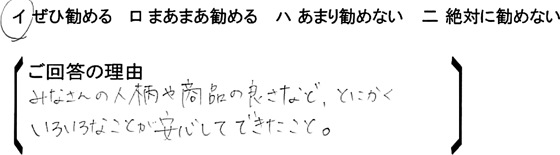 イ ぜひ勧める ロ まあまあ勧める ハ あまり勧めない ニ 絶対に勧めない
ご回答の理由
みなさんの人柄や商品の良さなど、とにかく
いろいろなことが安心してできたこと。